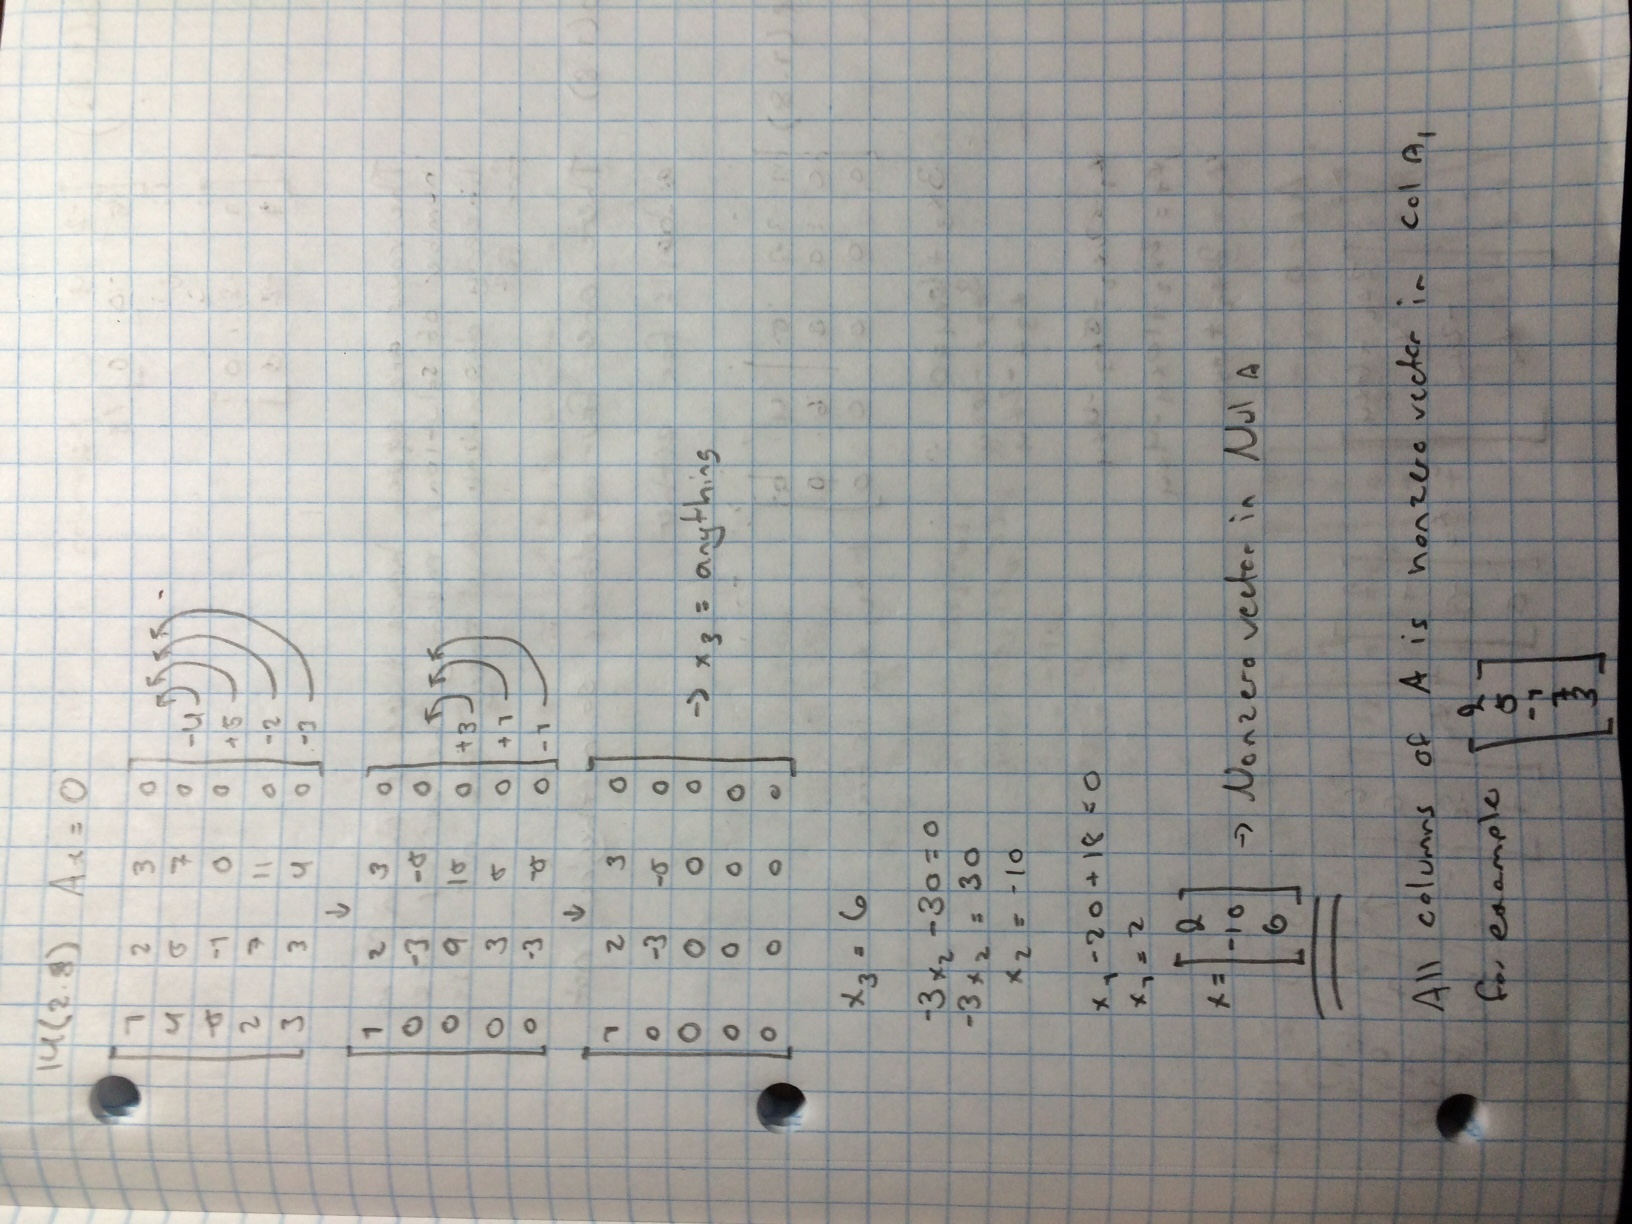 14(2.8) Ax = 0
1 2 3 0
4 5 7 0 -4
-5 -1 0 0 +5
2 7 11 0 -2
3 3 4 0 -3
↓
1 2 3 0
0 -3 -5 0
0 9 15 0 +3
0 3 5 0 +1
0 -3 -5 0 -1
↓
1 2 3 0
0 -3 -5 0
0 0 0 0 → x3 = anything
0 0 0 0
0 0 0 0
x3 = 6
-3x2 - 30 = 0
-3x2 = 30
x2 = -10
x1 - 20 + 18 = 0
x1 = 2
2
x = -10 → Nonzero vector in Nul A
6
All columns of A is nonzero vector in col A,
for example
2
5
-1
7
3